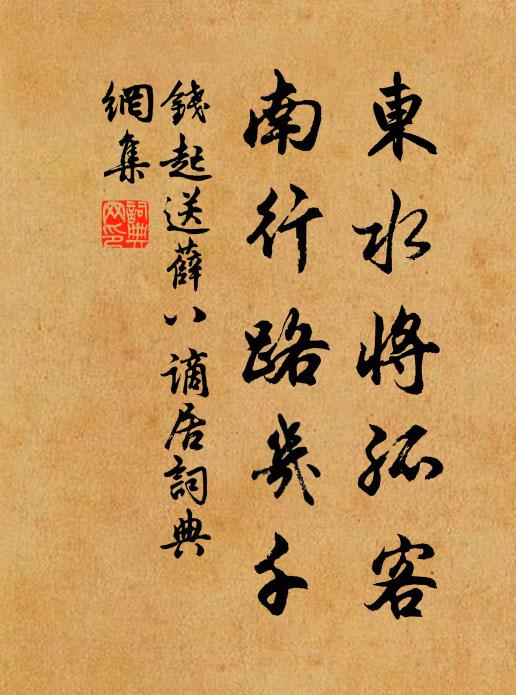 東水將孤客
南行路幾千
錢起送薛八謫居詞典
網集
詞典
網印